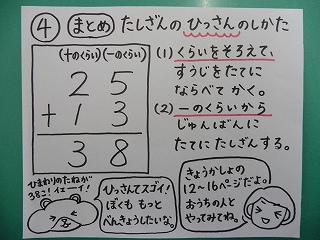 ④ まとめ たしざんの ひっさんのしかた
(十のくらい)(一のくらい)
25
+13
38
(1) くらいをそろえて、
すうじをたてに
ならべて かく。
(2) 一のくらいから
じゅんばんに
たてに たしざんする。
ひまわりのたねが
38こ!イェーイ!
ひっさんてスゴイ!
ぼくも もっと
べんきょうしたいな。
きょうかしょの
12~16ページだよ。
おうちの人と
やってみてね。